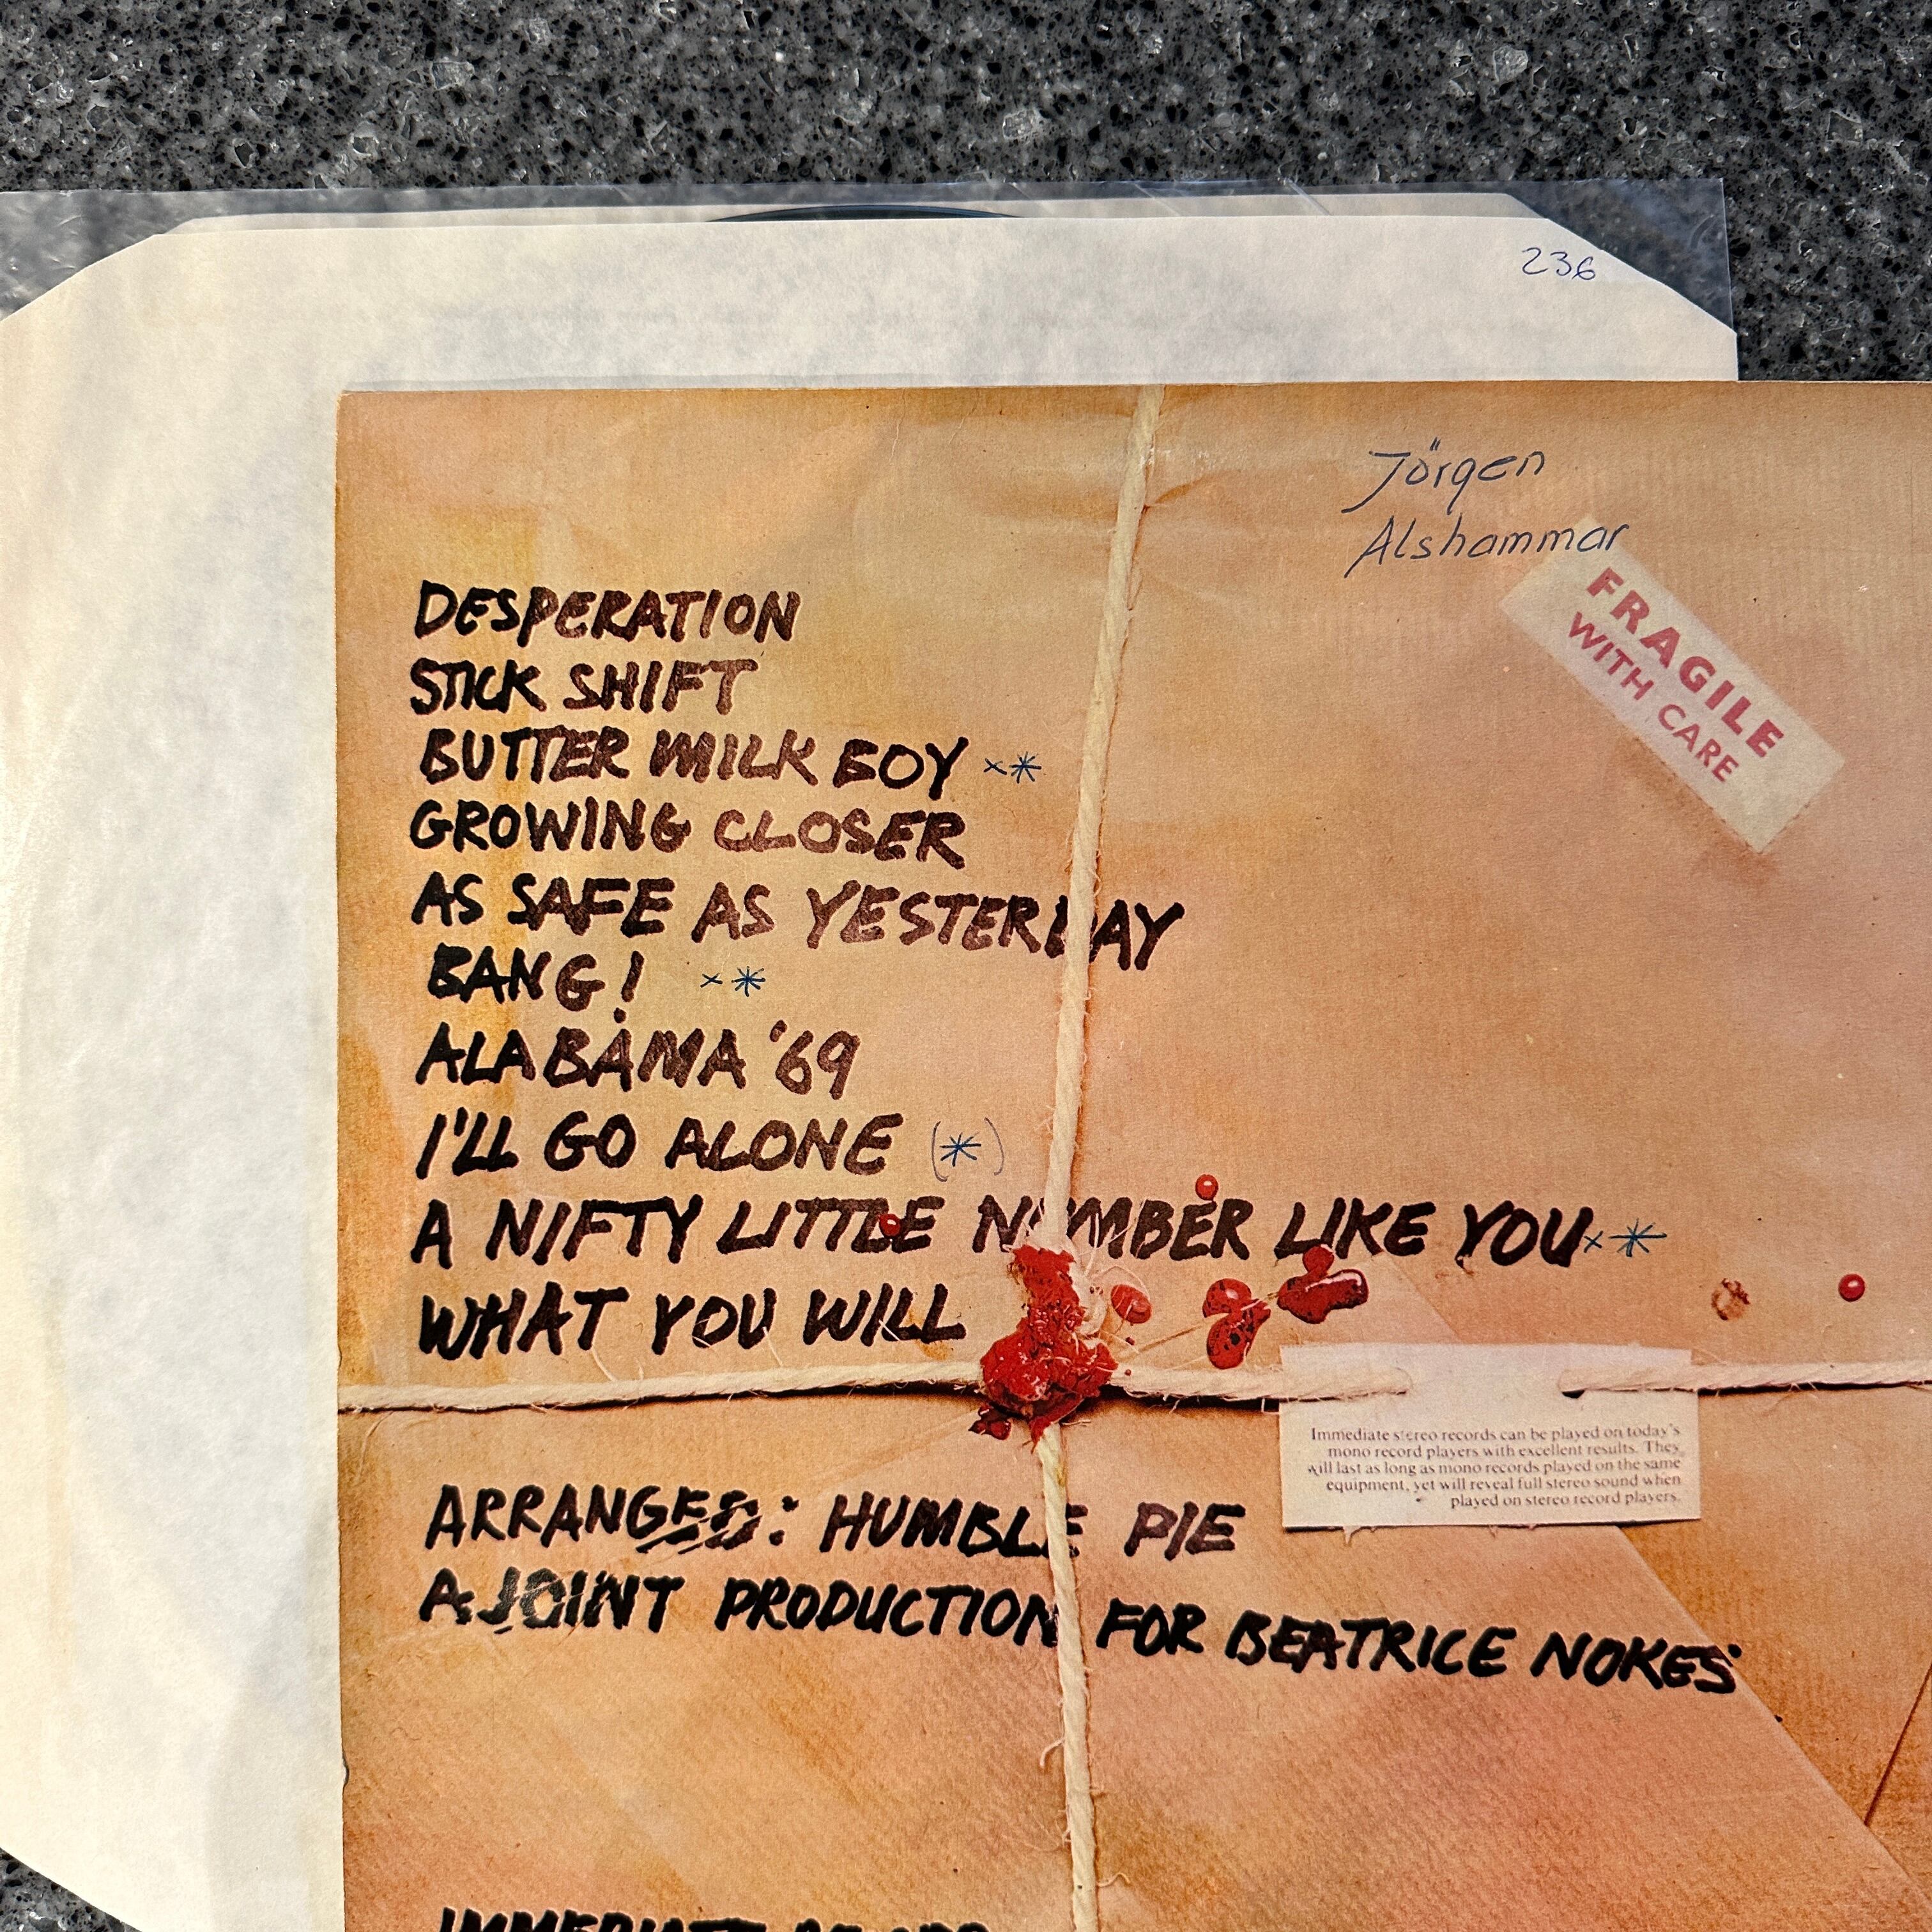 236
Jörgen
Alshammar
FRAGILE
WITH CARE
DESPERATION
STICK SHIFT
BUTTER MILK BOY ×*
GROWING CLOSER
AS SAFE AS YESTERDAY
BANG! ×*
ALABAMA '69
I'LL GO ALONE (*)
A NIFTY LITTLE NUMBER LIKE YOU ×*
WHAT YOU WILL
Immediate stereo records can be played on today's
mono record players with excellent results. They
will last as long as mono records played on the same
equipment, yet will reveal full stereo sound when
played on stereo record players.
ARRANGED: HUMBLE PIE
A JOINT PRODUCTION FOR BEATRICE NOKES
IMMEDIATE